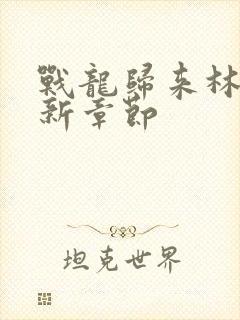 戰龍歸來林
新章節
坦克世界